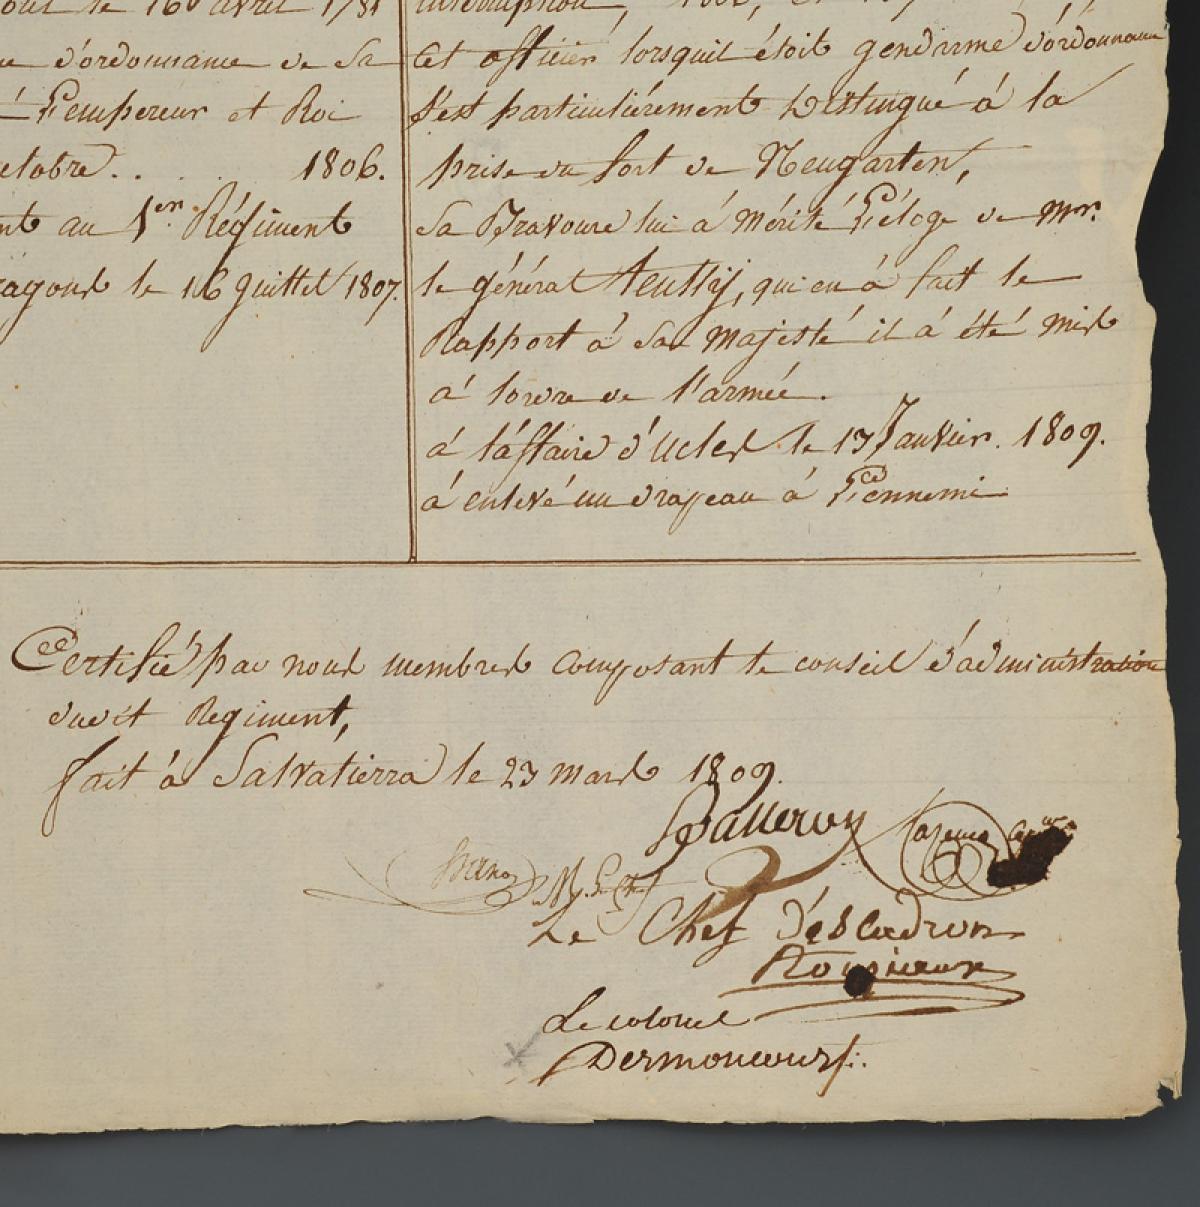 le 16 avril 1781
d'ordonnance de Sa
L'empereur et Roi
octobre . . . . 1806.
au 1er. Régiment
le 16 Juillet 1807.
interruption,
Cet officier lorsquil étoit gendarme d'ordonnance
s'est particuliérement Distingué à la
prise du fort de Neugarten,
Sa Bravoure lui à Mérité L'éloge de Mr.
le général Teulliy, qui en à fait le
Rapport à Sa Majesté il à été mis
à lordre de l'armée.
à l'affaire d'Ucles le 13 Janvier. 1809.
à enlevé un drapeau à L'ennemi
Certifié par nous membres composant le conseil d'administration
dudit Regiment,
fait à Salvatierra le 23 mars 1809.
Le Chef d'escadron
Le colonel
Dermoncourt